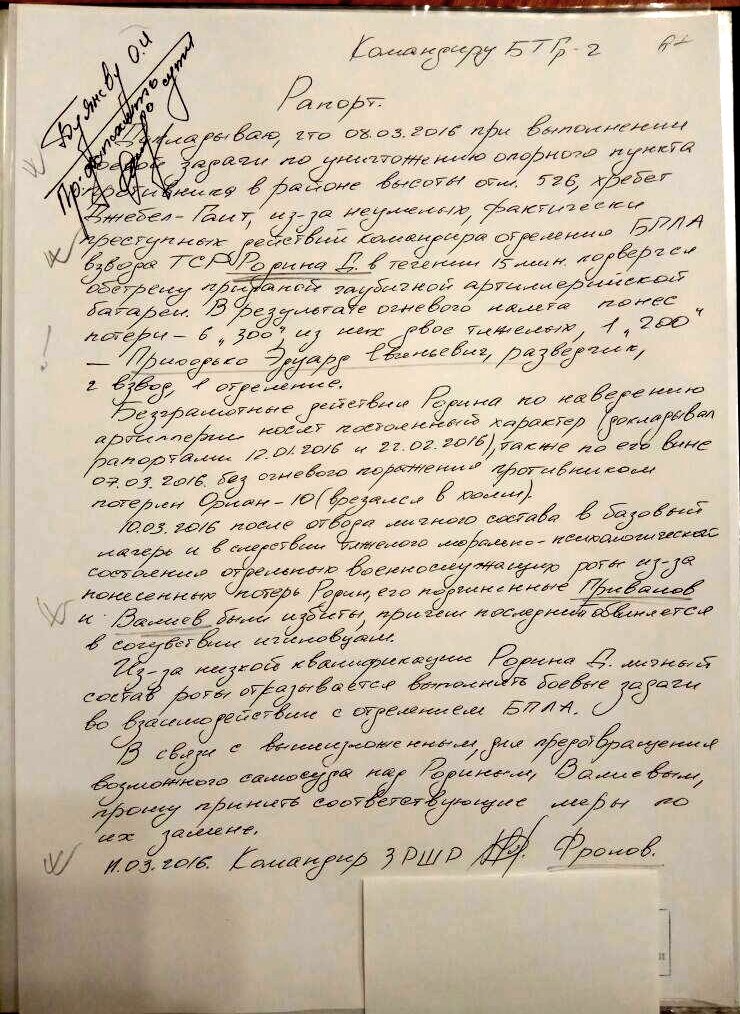 Командиру БТГр-2
Буянову О.И
по сути
Рапорт.
Докладываю, что 08.03.2016 при выполнении
боевой задачи по уничтожению опорного пункта
противника в районе высоты отм. 526, хребет
Джебел-Гаит, из-за неумелых, фактически
преступных действий командира отделения БПЛА
взвода ТСР Родина Д. в течении 15 мин. подвергся
обстрелу приданой гаубичной артиллерийской
батареи. В результате огневого налета понес
потери – 6 „300", из них двое тяжелых, 1 „200"
– Приходько Эдуард Евгеньевич, разведчик,
2 взвод, 1 отделение.
Безграмотные действия Родина по наведению
артиллерии носят постоянный характер (докладывал
рапортами 12.01.2016 и 22.02.2016), также по его вине
07.03.2016 без огневого поражения противником
потерян Орлан-10 (врезался в холм).
10.03.2016 после отвода личного состава в базовый
лагерь и в следствии тяжелого морально-психологической
состояния отдельных военнослужащих роты из-за
понесенных потерь Родин, его подчиненные Привалов
и Валиев были избиты, причем последний обвиняется
в сочувствии игиловцам.
Из-за низкой квалификации Родина Д. личный
состав роты отказывается выполнять боевые задачи
во взаимодействии с отделением БПЛА.
В связи с вышеизложенным, для предотвращения
возможного самосуда над Родиным, Валиевым,
прошу принять соответствующие меры по
их замене.
11.03.2016. Командир 3 РШР Фролов.